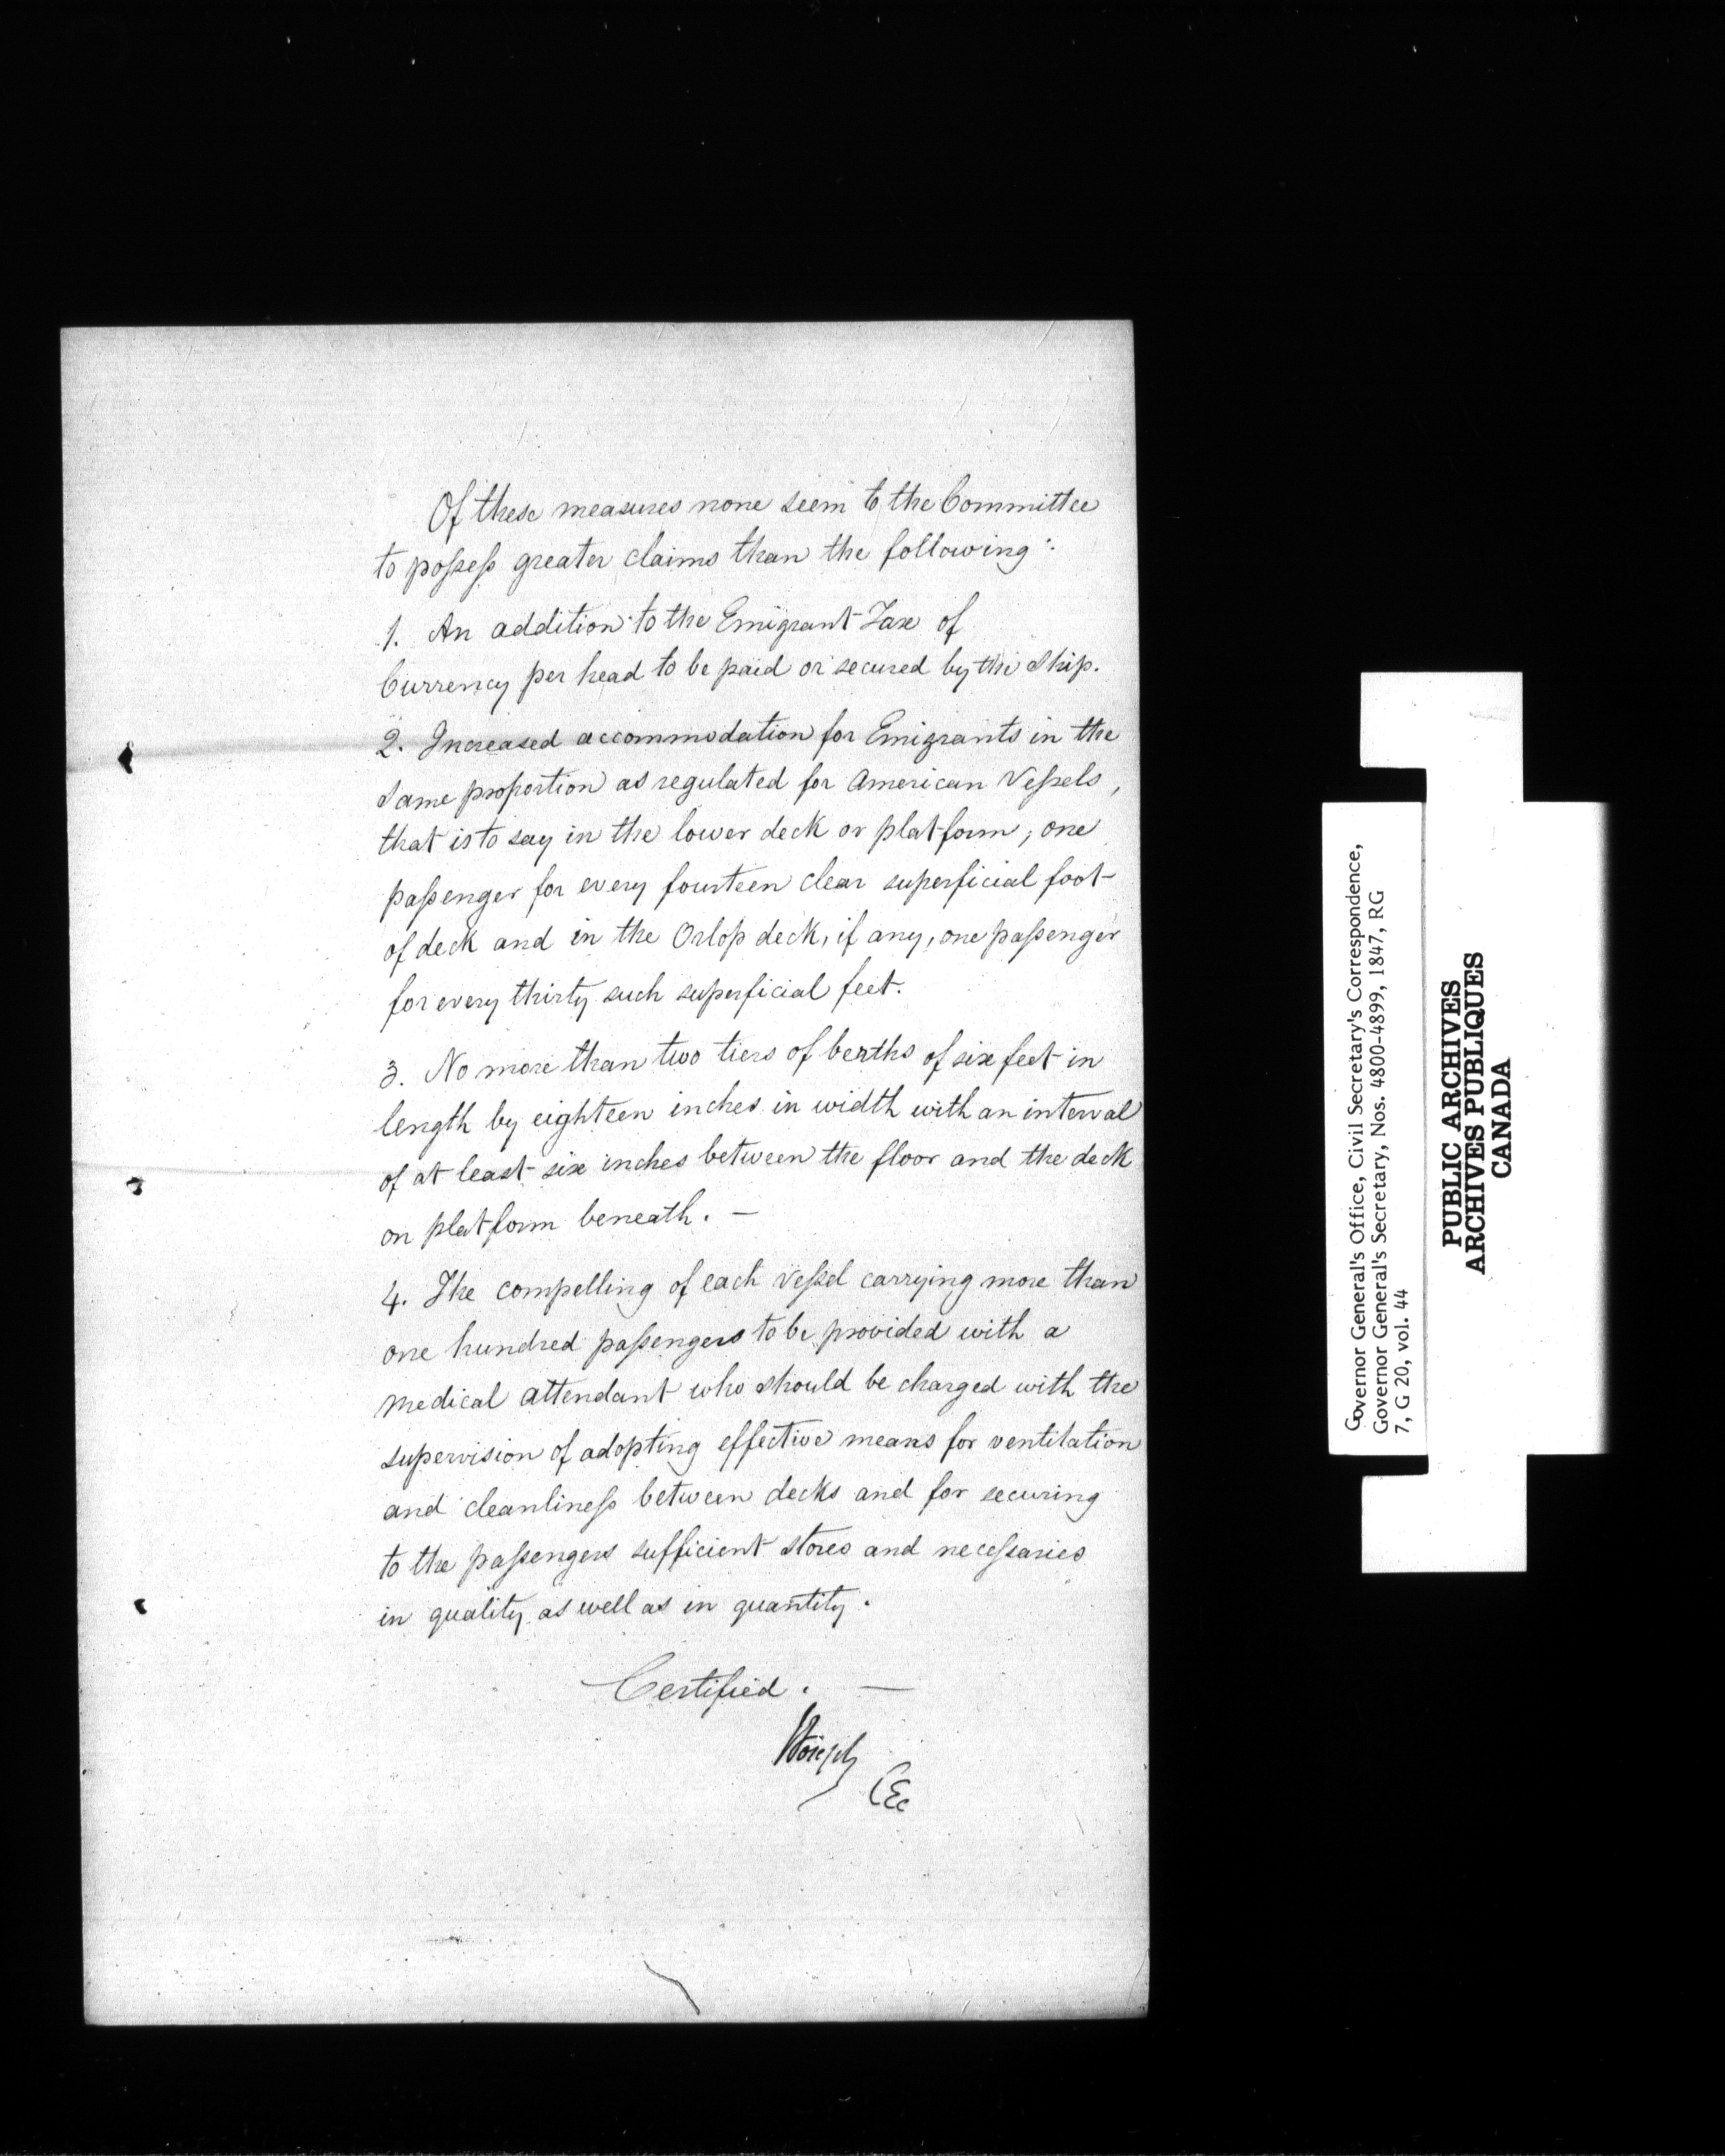 Of these measures none seem to the Committee
to possess greater claims than the following:
1. An addition to the Emigrant Tax of
Currency per head to be paid or secured by the Ship.
2. Increased accommodation for Emigrants in the
same proportion as regulated for American Vessels,
that is to say in the lower deck or platform, one
passenger for every fourteen clear superficial foot
of deck and in the Orlop deck, if any, one passenger
for every thirty such superficial feet.
3. No more than two tiers of berths of six feet in
length by eighteen inches in width with an interval
of at least six inches between the floor and the deck
or platform beneath. —
4. The compelling of each Vessel carrying more than
one hundred passengers to be provided with a
medical attendant who should be charged with the
supervision of adopting effective means for ventilation
and cleanliness between decks and for securing
to the passengers sufficient stores and necessaries
in quality as well as in quantity.
Certified. —
CEC
Governor General's Office, Civil Secretary's Correspondence,
Governor General's Secretary, Nos. 4800-4899, 1847, RG
7, G 20, vol. 44
PUBLIC ARCHIVES
ARCHIVES PUBLIQUES
CANADA